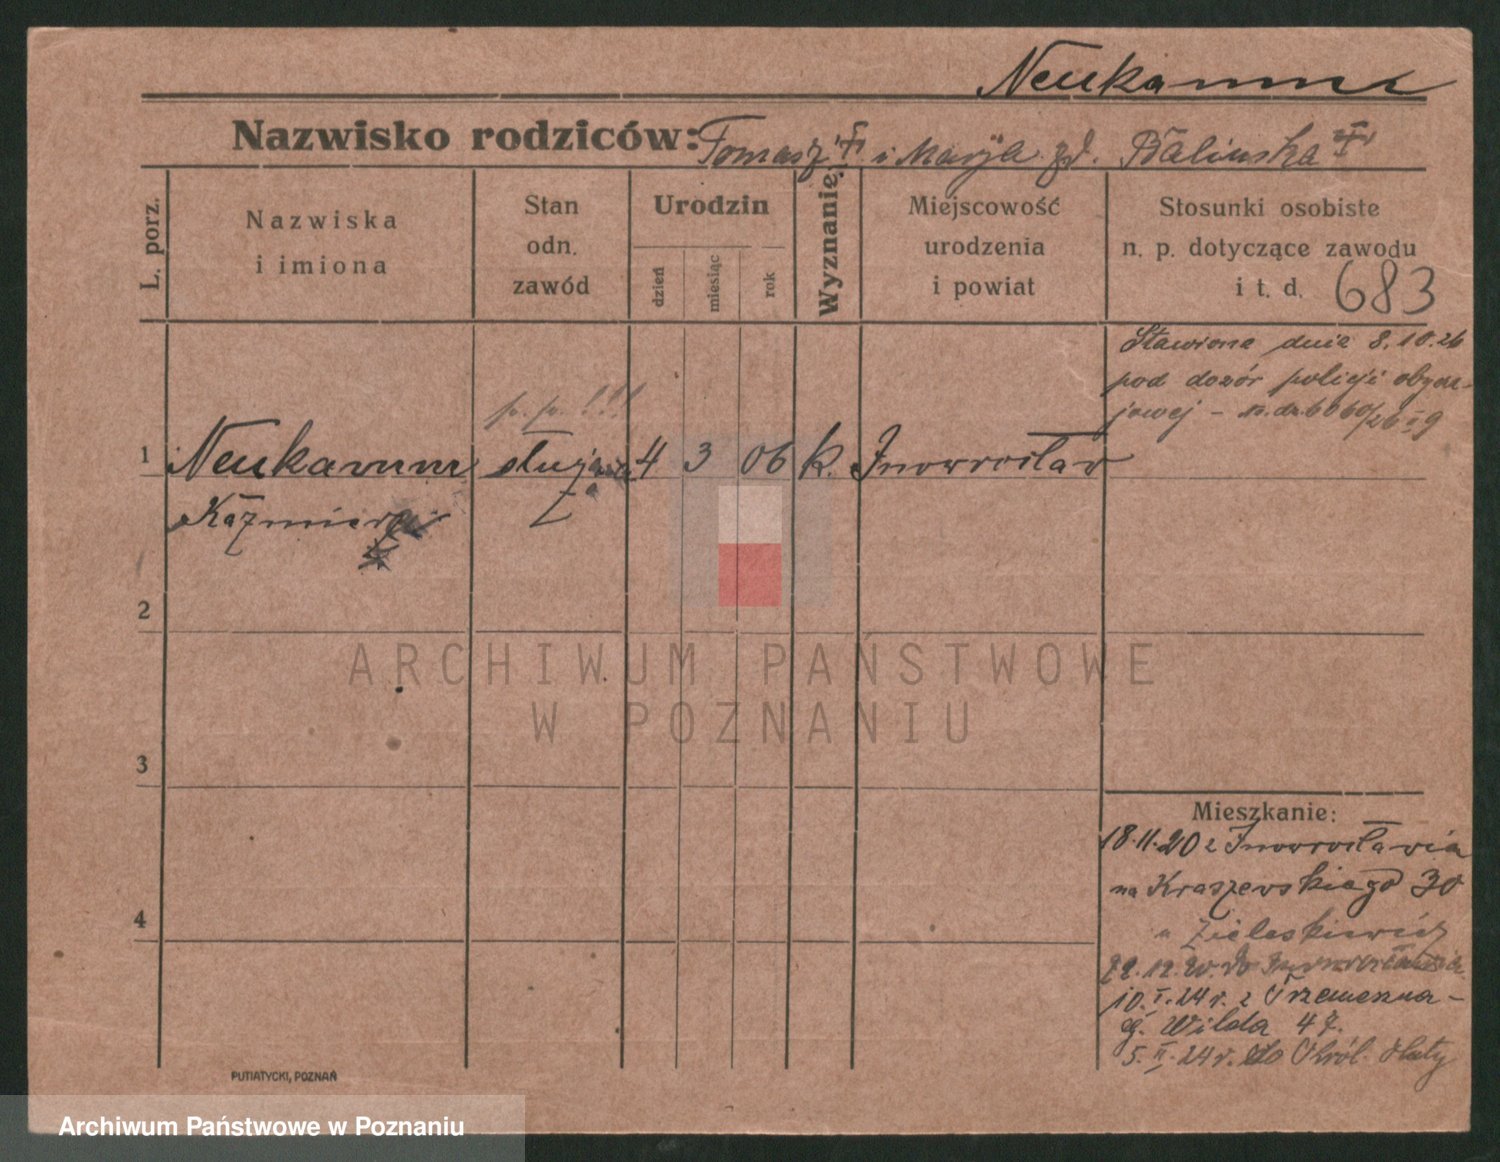 Neukamm
Nazwisko rodziców: Tomasz i Marja zd. Balinska
L. porz.
Nazwiska
i imiona
Stan
odn.
zawód
Urodzin
dzień
miesiąc
rok
Wyznanie
Miejscowość
urodzenia
i powiat
Stosunki osobiste
n. p. dotyczące zawodu
i t. d. 683
Stawiona dnia 8.10.26
pod dozór policji obycza-
jowej -
p. p. !!!
1 Neukamm służąca 4 3 06 k. Inowrocław
Kazmiera
2
3
4
Mieszkanie:
18.11.20 z Inowrocławia
na Kraszewskiego 30
u
22.12.20. do Inowrocławia
10.I.24 r. z Trzemeszna -
g. Wilda 47.
5.II.24 r. do Król. Huty
PUTIATYCKI, POZNAŃ
ARCHIWUM PAŃSTWOWE
W POZNANIU
Archiwum Państwowe w Poznaniu